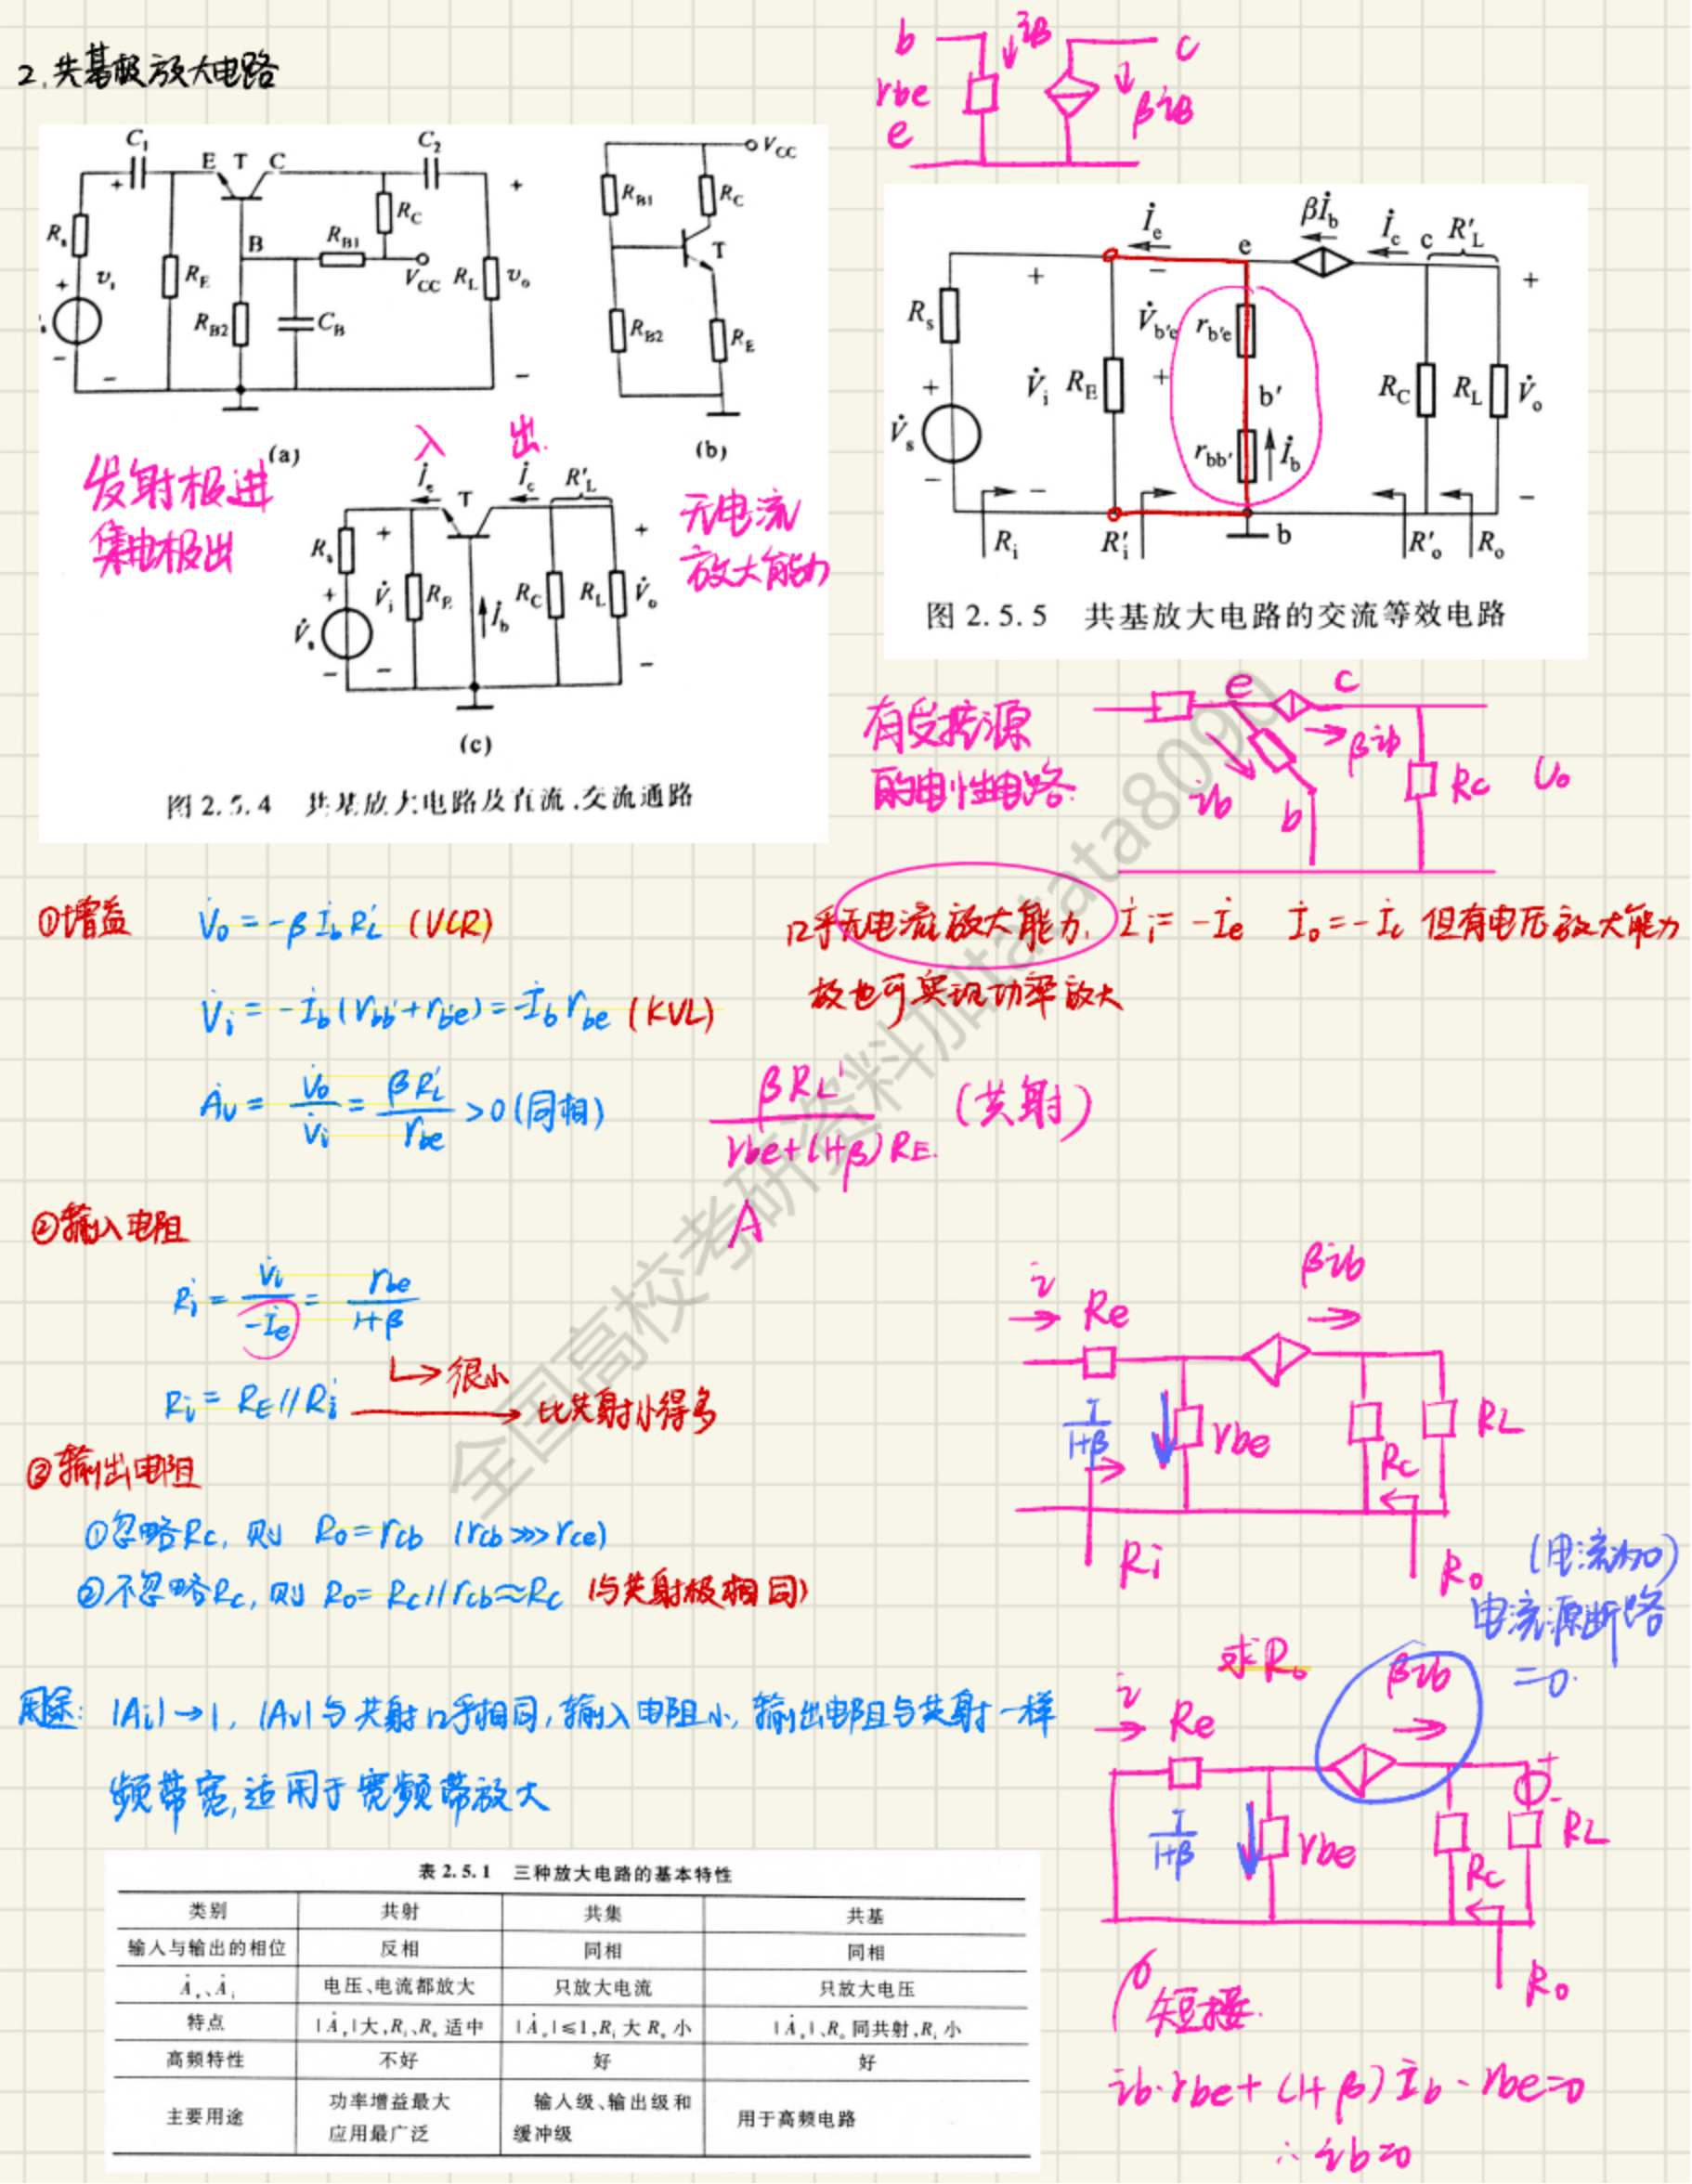 2.共基极放大电路
b
iB
c
rbe
βiB
e
C₁
E T C
C₂
Rs
RE
B
RB1
RC
VCC
RL
vo
RB2
CB
(a)
VCC
RB1
RC
T
RB2
RE
(b)
İe
e
βİb
İc
c
R'L
Rs
V̇b'e
rb'e
V̇i
RE
b'
RC
RL
V̇o
V̇s
rbb'
İb
Ri
R'i
b
R'o
Ro
图 2.5.5 共基放大电路的交流等效电路
发射极进
集电极出
入
出.
İe
T
İc
R'L
无电流
放大能力
Rs
V̇i
RE
İb
RC
RL
V̇o
V̇s
(c)
图 2.5.4 共基放大电路及直流、交流通路
有受控源
的电性电路.
e
c
βib
ib
b
Rc
Uo
①增益
V̇o = -βİbR'L (VCR)
V̇i = -İb(rbb'+rb'e) = -İb rbe (KVL)
Ȧv = V̇o/V̇i = βR'L/rbe >0 (同相)
几乎无电流放大能力, İi = -İe İo = -İc 但有电压放大能力
故也可实现功率放大
βRL'/(rbe+(1+β)RE.) (共射)
A
②输入电阻
Ri' = V̇i/-İe = rbe/1+β
↳很小
Ri = RE//Ri' → 比共射小得多
③输出电阻
①忽略Rc, 则 Ro=rcb (rcb>>>rce)
②不忽略Rc, 则 Ro= Rc//rcb≈Rc (与共射极相同)
i
Re
βib
I/1+β
rbe
Rc
RL
Ri
Ro
(电流为0)
电流源断路
=0.
求Ro
i
Re
βib
I/1+β
rbe
Rc
RL
Ro
短接.
ib·rbe+(1+β)Ib·rbe=0
∴ib=0
用途: |Ai|→1, |Av|与共射几乎相同, 输入电阻小, 输出电阻与共射一样
频带宽, 适用于宽频带放大
表 2.5.1 三种放大电路的基本特性
类别 共射 共集 共基
输入与输出的相位 反相 同相 同相
Ȧv、Ȧi 电压、电流都放大 只放大电流 只放大电压
特点 |Ȧv|大,Ri、Ro 适中 |Ȧv|≤1,Ri 大 Ro 小 |Ȧv|、Ro 同共射,Ri 小
高频特性 不好 好 好
主要用途 功率增益最大 应用最广泛 输入级、输出级和缓冲级 用于高频电路
全国高校考研资料加tata8090